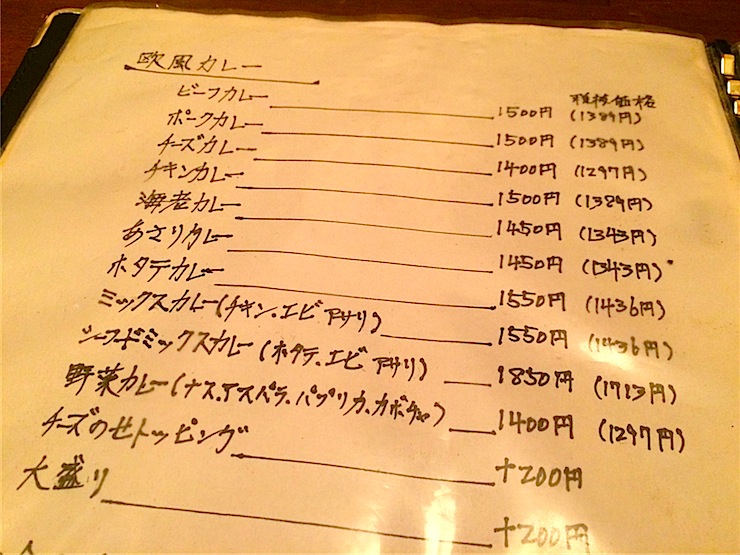 欧風カレー
税抜価格
ビーフカレー 1500円 (1389円)
ポークカレー 1500円 (1389円)
チーズカレー 1400円 (1297円)
チキンカレー 1500円 (1389円)
海老カレー 1450円 (1343円)
あさりカレー 1450円 (1343円)
ホタテカレー 1550円 (1436円)
ミックスカレー(チキン、エビ アサリ) 1550円 (1436円)
シーフードミックスカレー(ホタテ、エビ アサリ) 1850円 (1713円)
野菜カレー(ナス、アスパラ、パプリカ、カボチャ) 1400円 (1297円)
チーズのせトッピング +200円
大盛り +200円